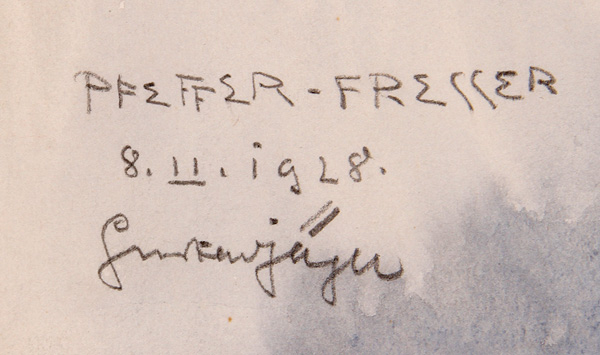 PFEFFER-FRESSER
8. II. 1928.
Gustav Jäger